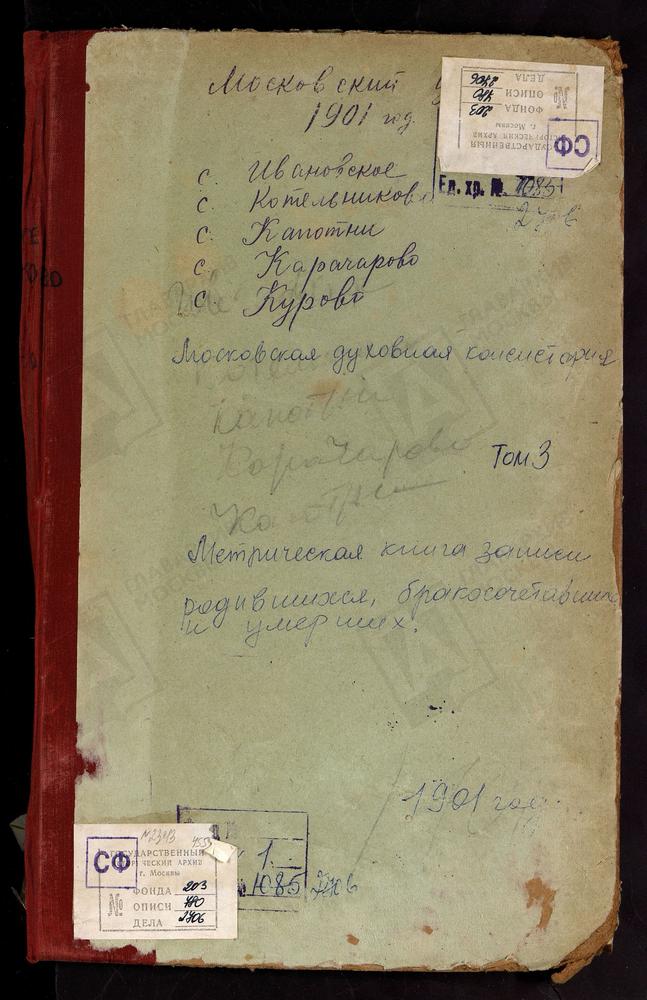 Московский у
1901 год.
с. Ивановское
с. Котельниково
с. Капотни
с. Карачарово
с. Курово
Московская духовная консистория
Капотни
Карачарово
Капотни
Том 3
Метрическая книга записи
родившихся, бракосочетавшихся
и умерших.
1901 год
ГОСУДАРСТВЕННЫЙ
ИСТОРИЧЕСКИЙ АРХИВ
г. Москвы
СФ
№
ФОНДА 203
ОПИСИ 780
ДЕЛА 2706
Ед. хр. № 1085
1.
№ 1085
СФ
ГОСУДАРСТВЕННЫЙ
ИСТОРИЧЕСКИЙ АРХИВ
г. Москвы
№
ФОНДА 203
ОПИСИ 780
ДЕЛА 2706